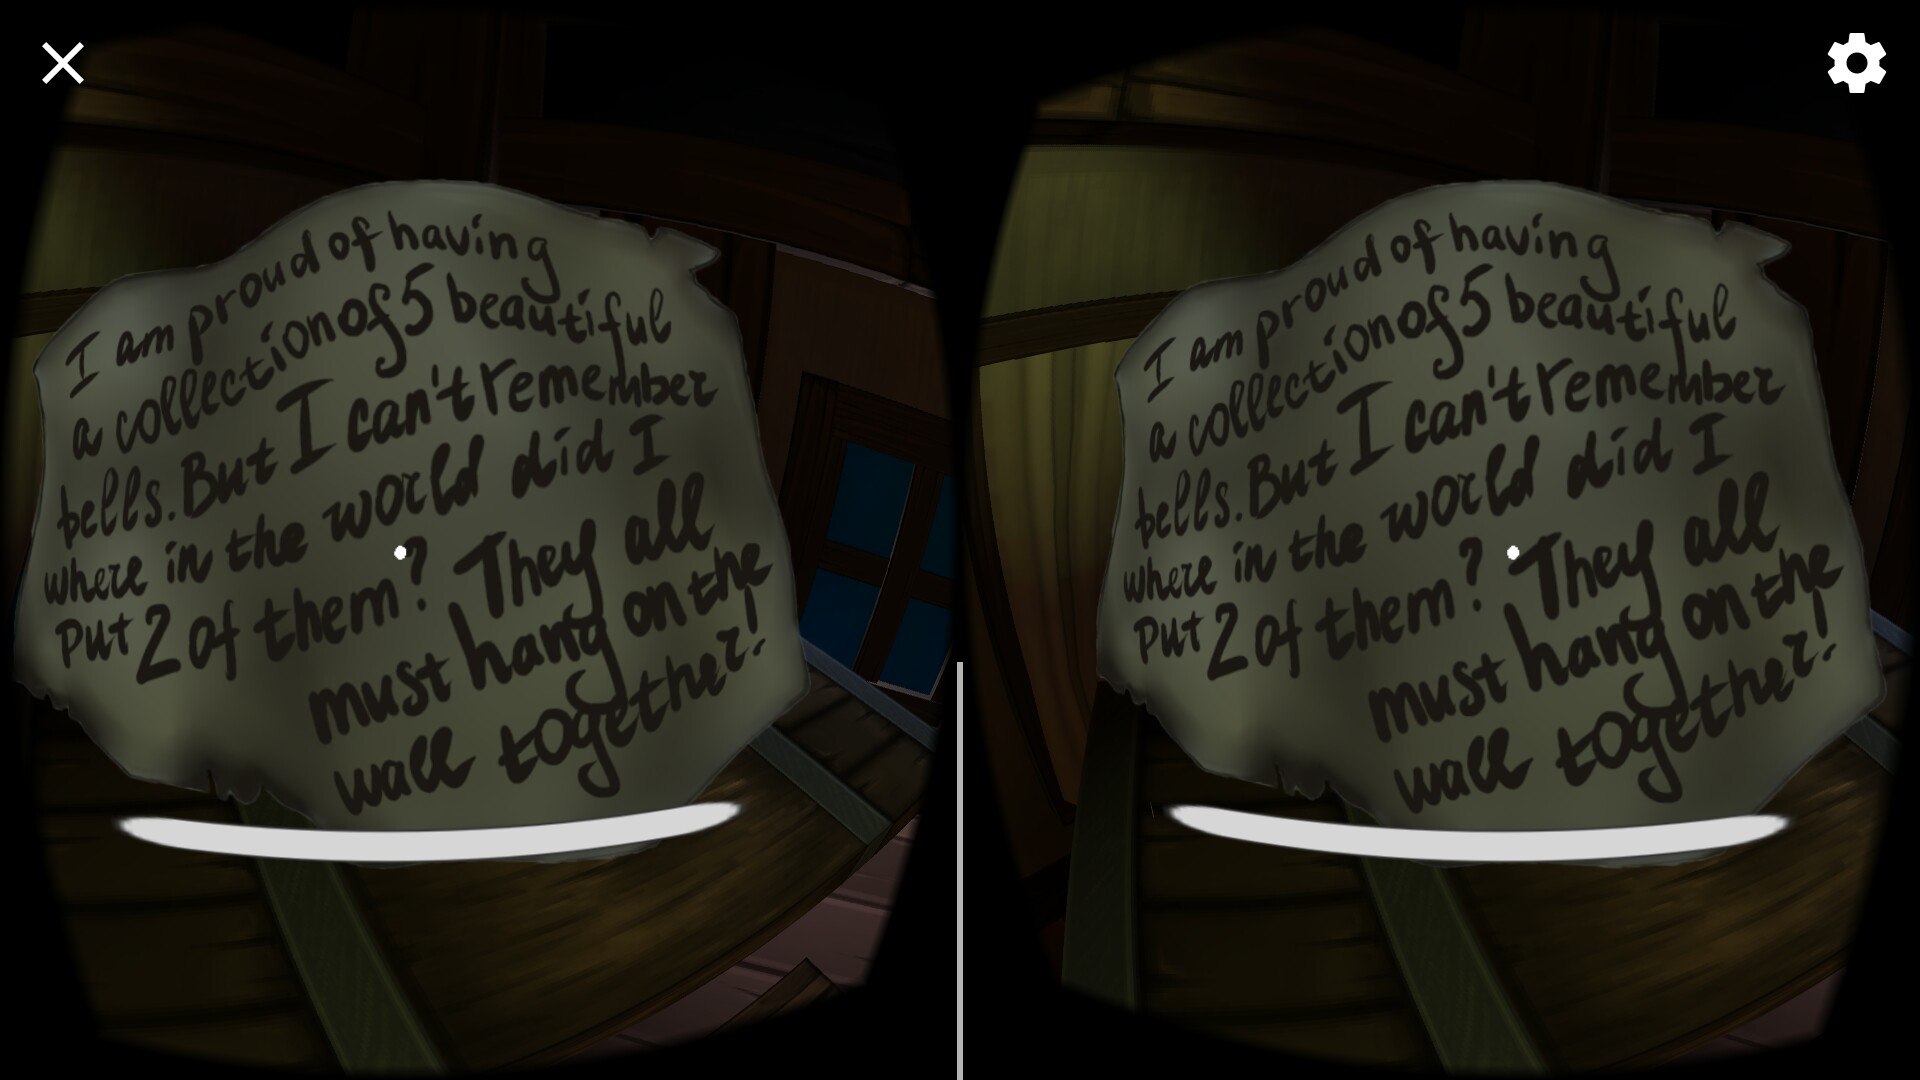 I am proud of having
a collection of 5 beautiful
bells. But I can't remember
where in the world did I
put 2 of them? They all
must hang on the
wall together!
I am proud of having
a collection of 5 beautiful
bells. But I can't remember
where in the world did I
put 2 of them? They all
must hang on the
wall together!